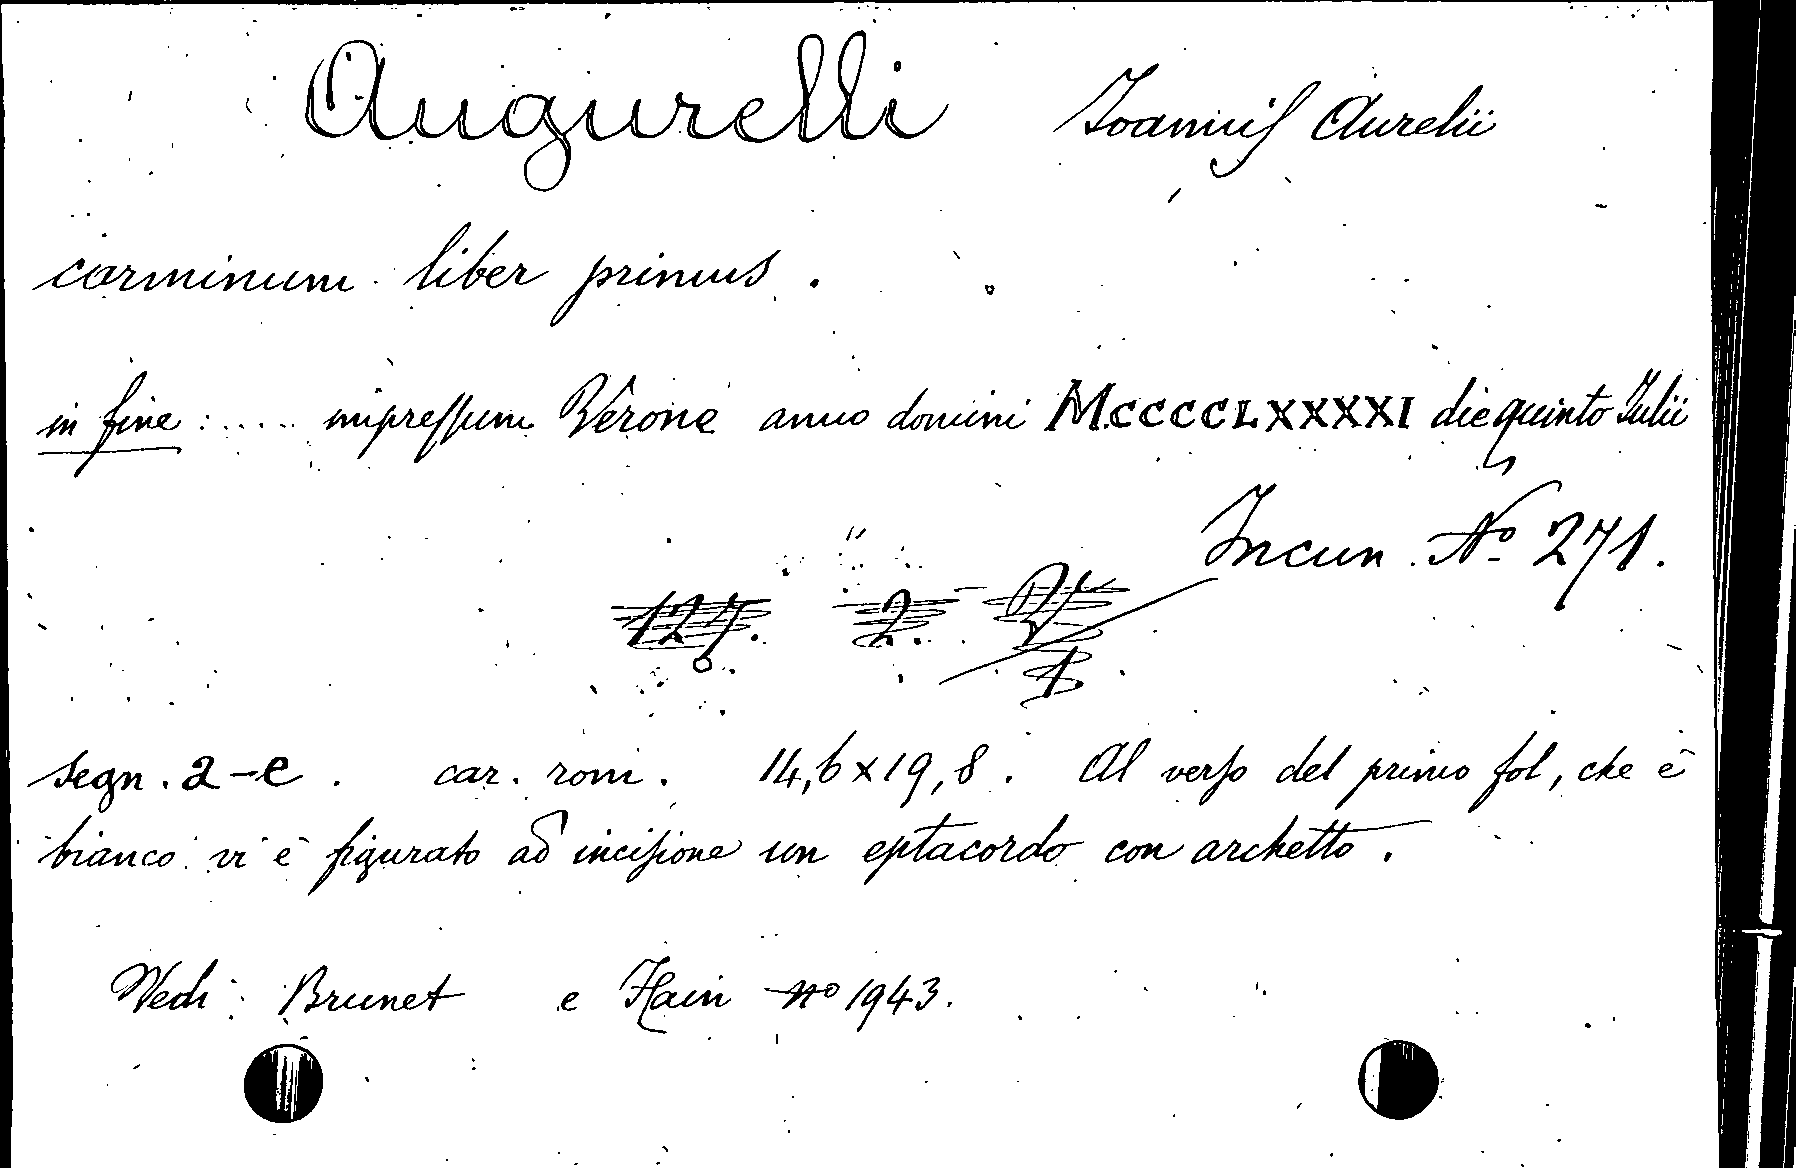 Augurelli Ioannis Aurelii
carminum liber primus.
in fine: .... impressum Verone anno domini MCCCCLXXXXI die quinto Iulii
Incun. No 271.
127. 2. V
1.
segn. a-e. car. rom. 14,6x19,8. Al verso del primo fol, che è
bianco vi è figurato ad incisione un eptacordo con archetto.
Vedi: Brunet e Hain no 1943.